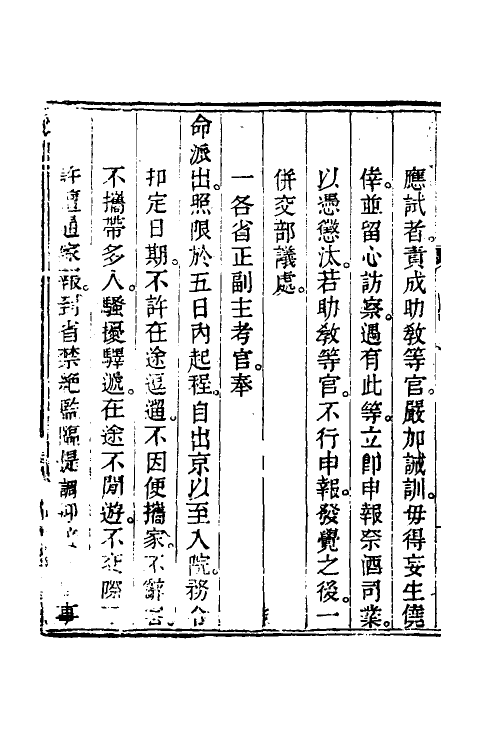 應試者。責成助敎等官。嚴加誡訓。毋得妄生僥
倖。並留心訪察。遇有此等。立卽申報祭酒司業。
以憑懲汰。若助敎等官。不行申報。發覺之後。一
併交部議處。
一各省正副主考官。奉
命派出。照限於五日內起程。自出京以至入院。務令
扣定日期。不許在途逗遛。不因便攜家。不辭客
不攜帶多人。騷擾驛遞。在途不閒遊。不交際
許擅通家報。到省禁絕監臨提調